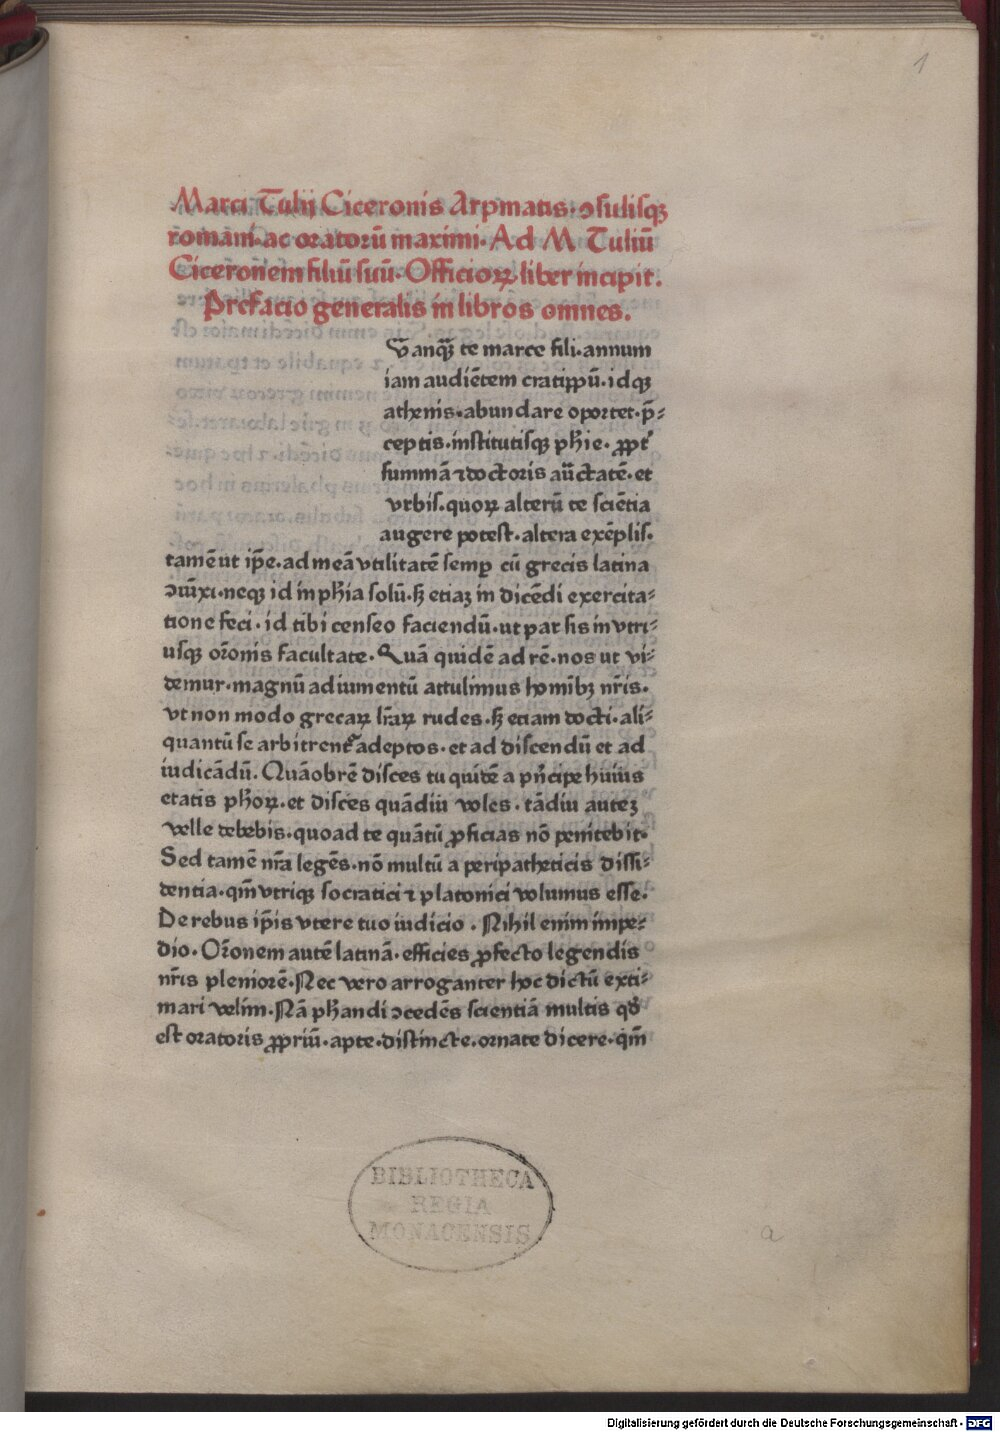 1
Marci Tulij Ciceronis Arpinatis· ↄsulisqꝫ
romani·ac oratorū maximi· Ad M Tuliū
Ciceronem filiū suū· Officioꝝ liber incipit.
Prefacio generalis in libros omnes.
Vanqꝫ̄ te marce fili·annum
iam audiētem cratippū·idqꝫ
athenis·abundare oportet·p̄⸗
ceptis·institutisqꝫ phie· ꝓpt᷑
summā ⁊doctoris au͞ctatē·et
vrbis·quoꝝ alterū te sciētia
augere potest·altera exēplis·
tamē ut ip̄e·ad meā vtilitatē semꝑ cū grecis latina
ↄiūxi·neqꝫ id in phia solū·sꝫ etiaꝫ in dicēdi exercita⸗
tione feci·id tibi censeo faciendū·ut par sis in vtri⸗
usqꝫ or̄onis facultate· Quā quidē ad rē·nos ut vi⸗
demur·magnū adiumentū attulimus homibꝫ nr̄is·
vt non modo grecaꝝ lr̄aꝝ rudes·sꝫ etiam docti·ali⸗
quantū se arbitrent᷑ adeptos·et ad discendū et ad
iudicādū· Quāobrē disces tu quidē a pͥncipe huius
etatis phoꝝ·et disces quādiu voles·tādiu auteꝫ
velle debebis·quoad te quātū ꝓficias nō penitebit·
Sed tamē nr̄a legēs·nō multū a peripatheticis dissi⸗
dentia·qm̄ vtriqꝫ socratici ⁊ platonici volumus esse·
De rebus ip̄is vtere tuo iudicio · Nihil enim impe⸗
dio· Or̄onem autē latinā·efficies ꝓfecto legendis
nr̄is pleniorē·Nec vero arroganter hoc dictū exti⸗
mari velim·Nā phandi ↄcedēs scientiā multis qd̄
est oratoris ꝓpriū·apte·distincte·ornate dicere·qm̄
BIBLIOTHECA
REGIA
MONACENSIS
a
Digitalisierung gefördert durch die Deutsche Forschungsgemeinschaft - DFG